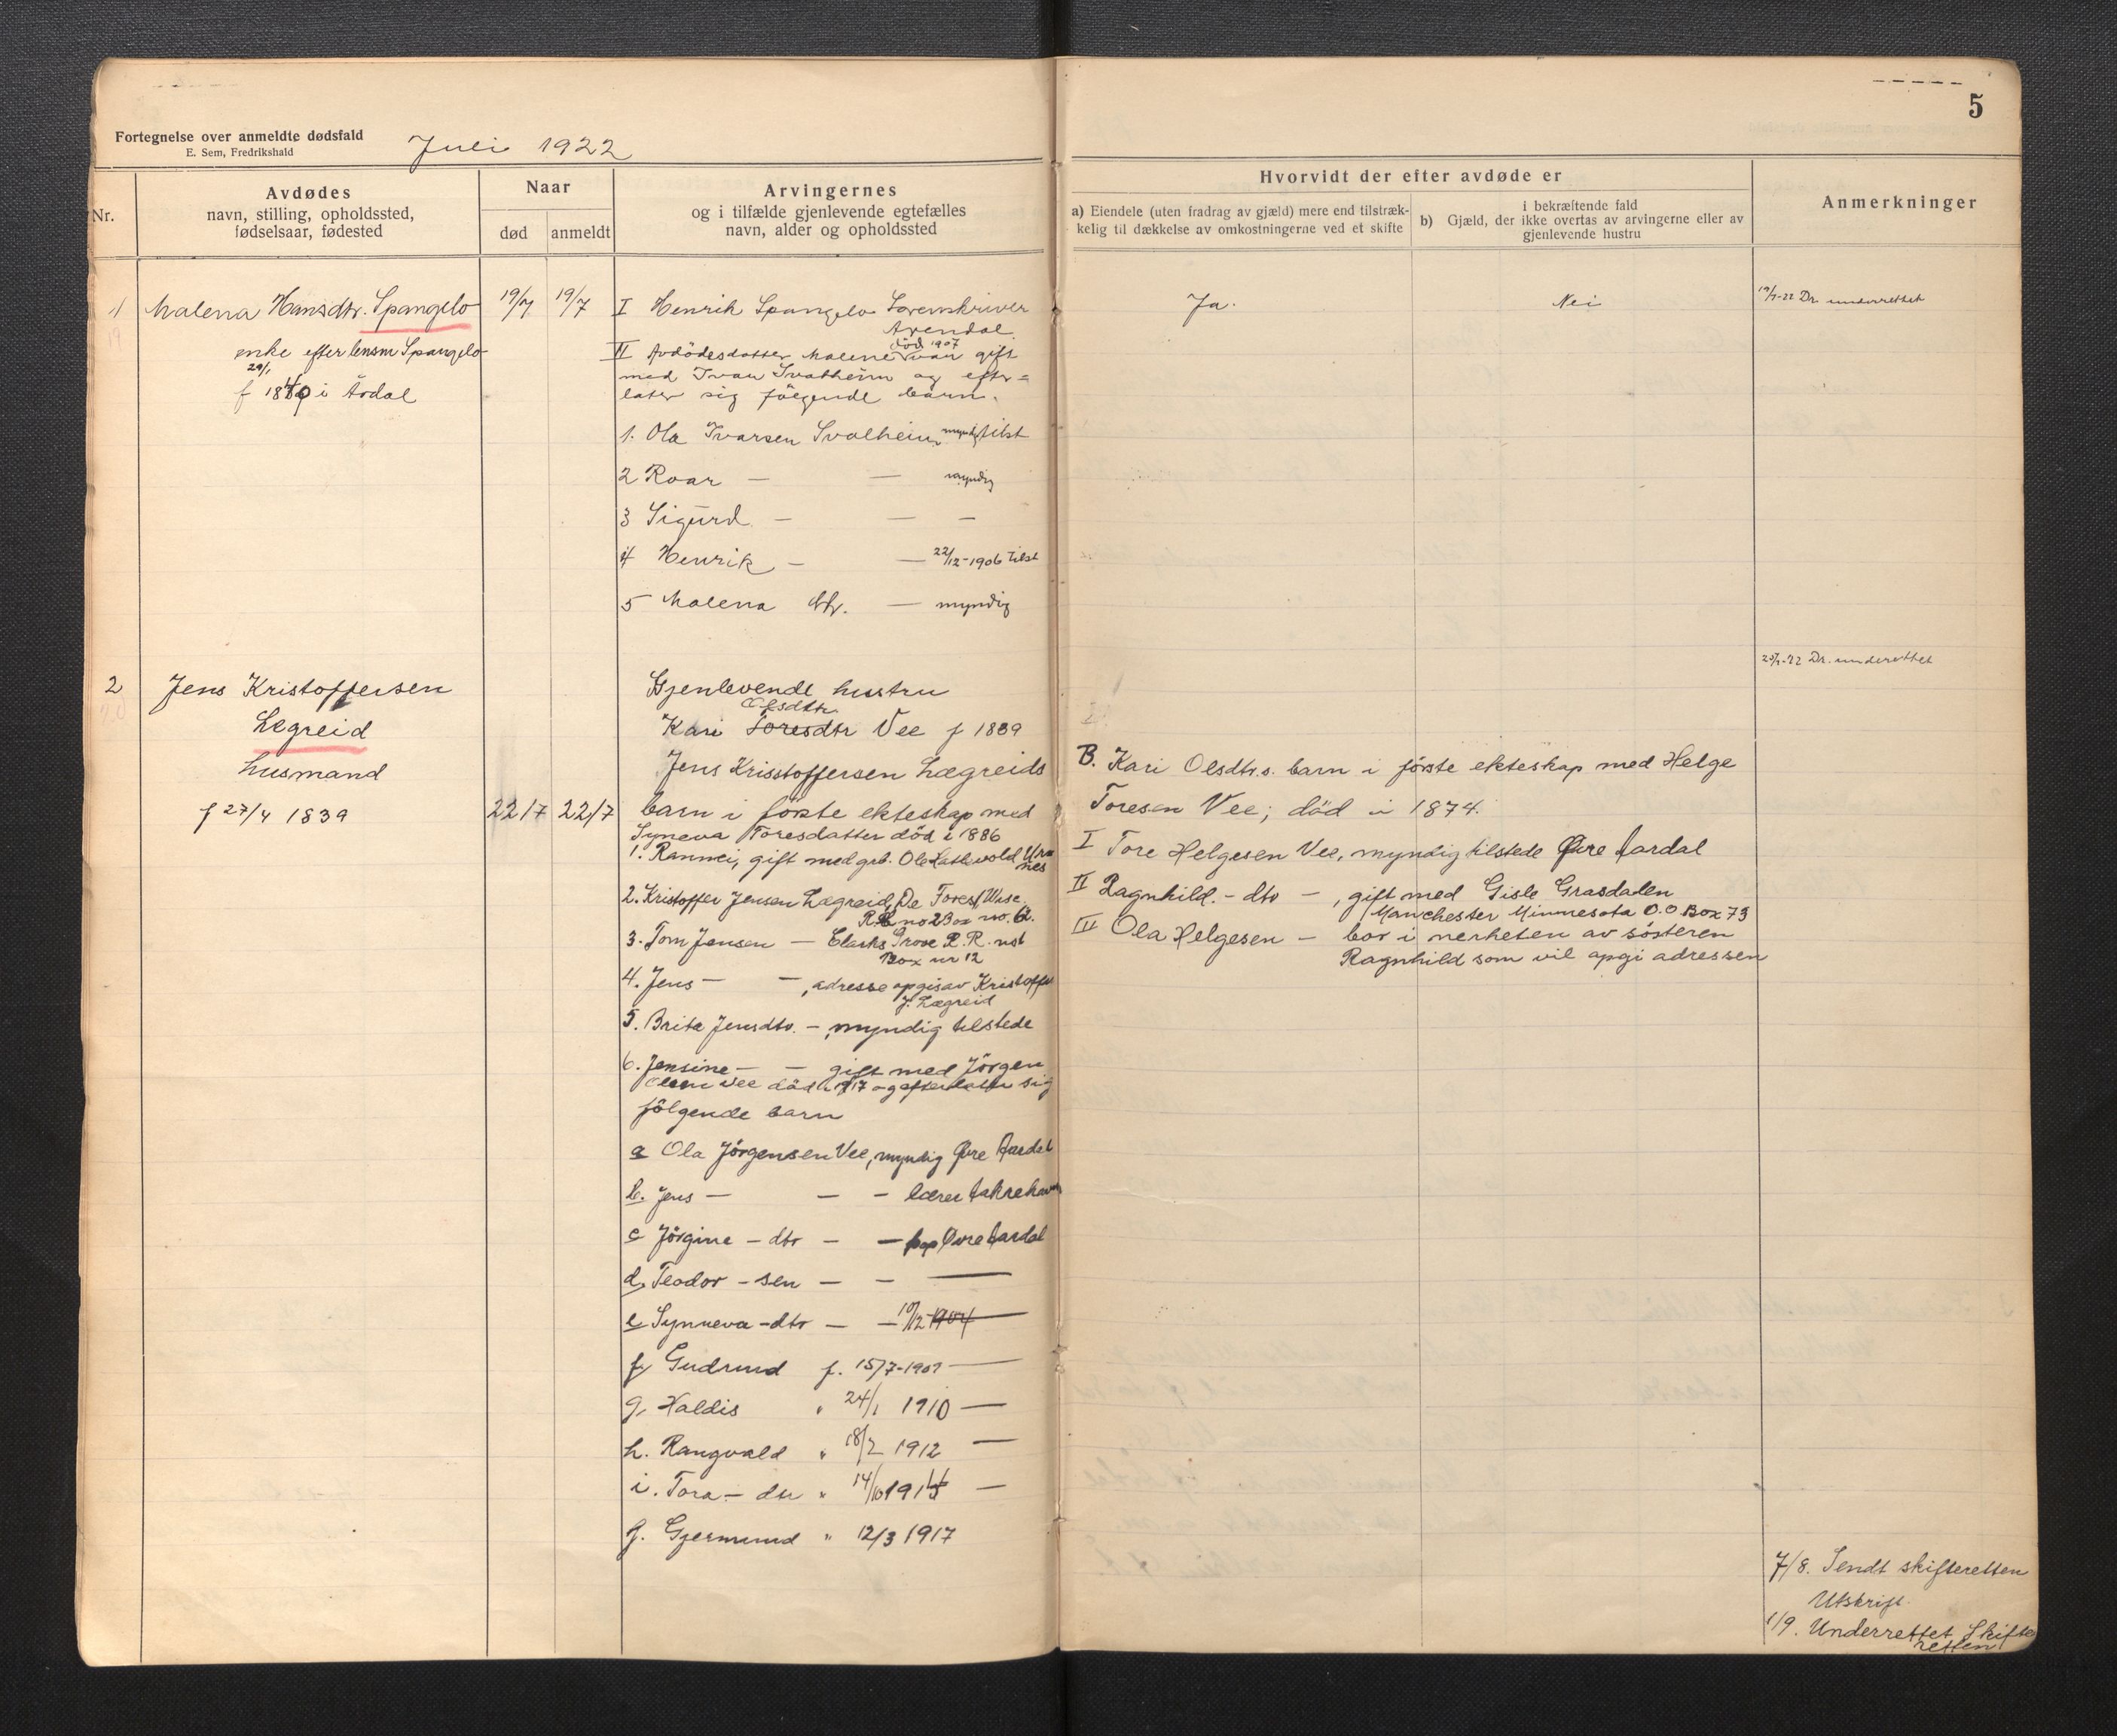 5
Fortegnelse over anmeldte dødsfald
E. Sem, Fredrikshald
Juli 1922
Nr.
Avdødes
navn, stilling, opholdssted,
fødselsaar, fødested
Naar
død
anmeldt
Arvingernes
og i tilfælde gjenlevende egtefælles
navn, alder og opholdssted
Hvorvidt der efter avdøde er
a) Eiendele (uten fradrag av gjæld) mere end tilstræk-
kelig til dækkelse av omkostningerne ved et skifte
i bekræftende fald
b) Gjæld, der ikke overtas av arvingerne eller av
gjenlevende hustru
Anmerkninger
1
Malena Hansdtr. Spangelo
enke efter lensm Spangelo
29/1
f 1840 i Årdal
19/7
19/7
I Henrik Spangelo Sorenskriver
Arendal
død 1907
II Avdødesdatter Malene var gift
med Ivar Svalheim og efter=
later sig følgende barn.
1. Ola Ivarsen Svalheim myndig tilst
2 Roar — — myndig
3 Sigurd — — —
4 Henrik — — 22/12-1906 tilst
5 Malena dtr. — myndig
Ja.
Nei
19/7-22 Dr. underrettet
2
Jens Kristoffersen
Legreid
husmand
f 27/4 1839
22/7
22/7
Gjenlevende hustru
Olsdtr.
Kari Toresdtr Vee f 1839
Jens Kristoffersen Lægreids
barn i første ekteskap med
Syneva Toresdatter død i 1886
1. Rannei, gift med grb. Ole Lathevold Ur
nes
2. Kristoffer Jensen Lægreid, De Forest Wisc.
R.R. no 2 Box no. 62.
3. Tom Jensen — Clarks Grove R.R. no1
Box nr 12
4. Jens — —, adresse opgis av Kristoffer
J. Lægreid
5. Brita Jensdtr. —, myndig tilstede
6. Jensine — — gift med Jørgen
Olsen Vee død i 1917 og efterlater sig
følgende barn
a Ola Jørgensen Vee, myndig Øvre Aardal
b. Jens — — — lærer Aakrehavn
c Jørgine — dtr — — Øvre Aardal
d. Teodor — sen — — —
e Synneva — dtr — — 10/12 1904 —
f Gudrund f. 15/7-1907 —
g. Haldis " 24/1 1910 —
h. Rangvald " 18/2 1912 —
i. Tora — dtr " 14/10 1914 —
j. Gjermund " 12/3 1917
25/7-22 Dr. underrettet
B. Kari Olsdtr.s. barn i første ekteskap med Helge
Toresen Vee; död i 1874.
I Tore Helgesen Vee, myndig tilstede Øvre Aardal
II Ragnhild. — dtr —, gift med Gisle Grasdalen
Manchester Minnesota O.O. Box 73
III Ola Helgesen — bor i nerheten av søsteren
Ragnhild som vil opgi adressen
7/8. Sendt skifteretten
Utskrift.
1/9. Underrettet Skifte
retten